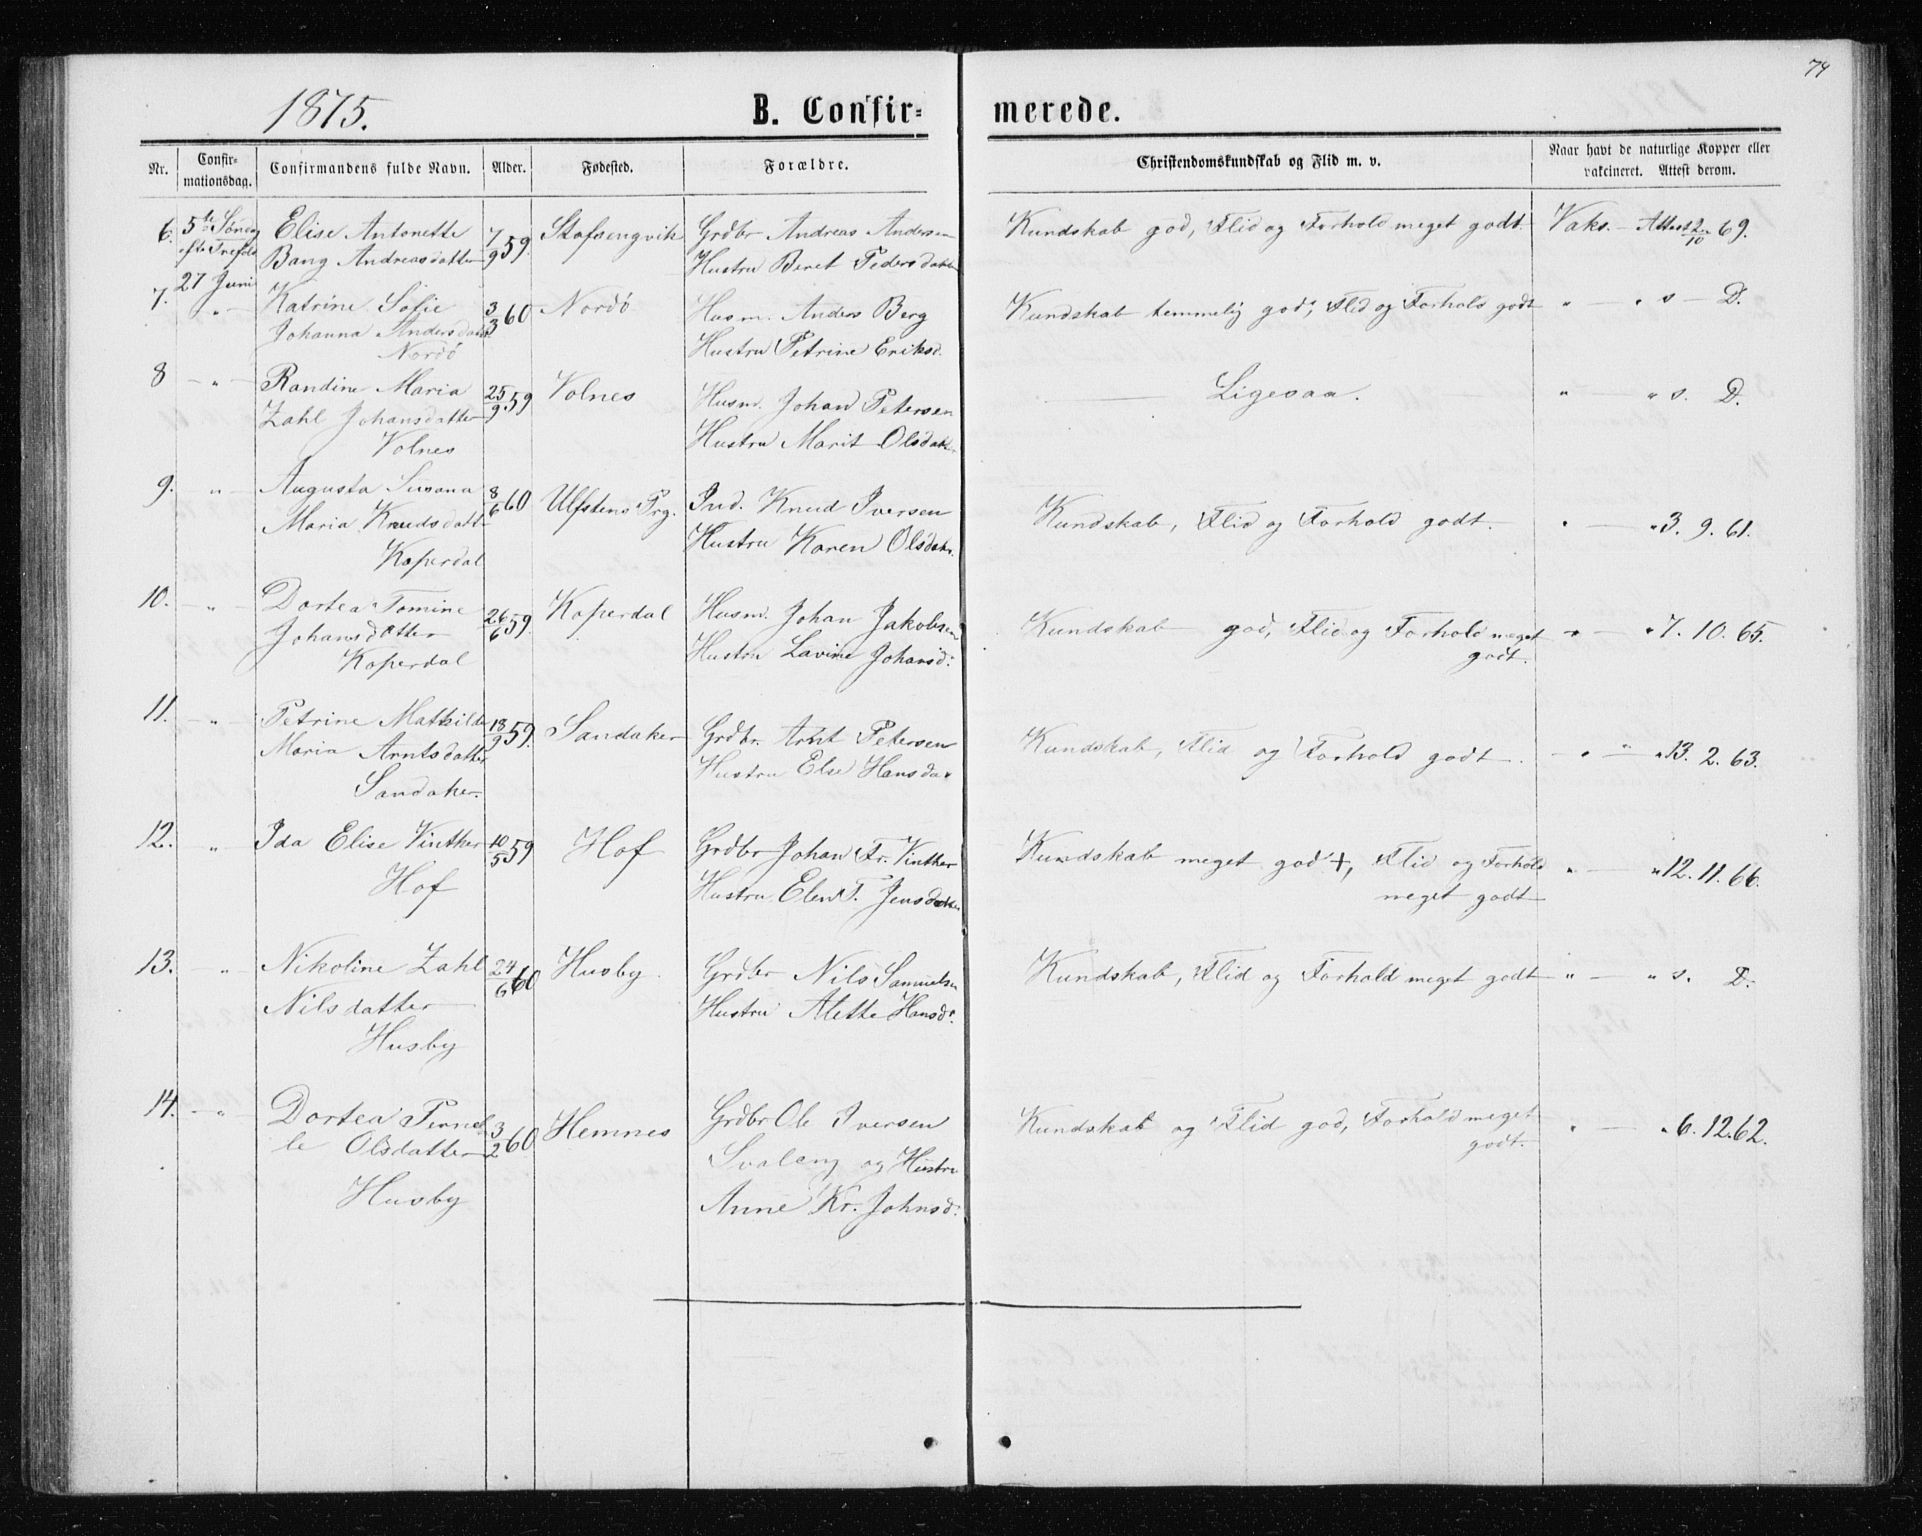 74
1875.
B. Confir=
merede.
Nr.
Confir-
mationsdag.
Confirmandens fulde Navn.
Alder.
Fødested.
Forældre.
Christendomskundskab og Flid m. v.
Naar havt de naturlige Kopper eller
vakcineret. Attest derom.
6. 5te Søndag Elise Antonette 7/9 59. Grdbr Andreas Andersen Kundskab god, Flid og Forhold meget godt. Vaks. – Attest 2/10 69.
27 Juni Bang Andreasdatter Hustru Beret Pedersdatter
7. „ Katrine Sofie 3/3 60 Nordø Husm. Anders Berg Kundskab temmelig god, Flid og Forhold godt „ „ s – D.
Johanna Andersdatter Hustru Petrine Eriksd.
Nordø
8 – „ – Randine Maria 25/9 59 Volnes Husm. Johan Petersen Ligesaa. „ „ s. D.
Zahl Johansdatter Hustru Marit Olsdatter
Volnes
9. „ Augusta Susana 8/6 60 Ulfstens Prg. Ind. Knud Iversen Kundskab, Flid og Forhold godt. „ „ 3. 9. 61.
Maria Knudsdatt Hustru Karen Olsdatr.
Koperdal
10. „ Dortea Tomine 26/6 59. Koperdal Husm. Johan Jakobsen Kundskab god, Flid og Forhold meget „ „ 7. 10. 65.
Johansdatter Hustru Lavine Johansd: godt.
Koperdal
11. „ Petrine Mathilde 18/9 59. Sandaker Grdbr. Arnt Petersen Kundskab, Flid og Forhold godt. „ „ 13. 2. 63.
Maria Arntsdatter Hustru Else Hansda
Sandaker.
12. „ Ida Elise Vinther 10/5 59 Hof Grdbr Johan Fr. Vinther Kundskab meget god +, Flid og Forhold „ „ 12. 11. 66.
Hof Hustru Elen T. Jensdatter meget godt
13. „ Nikoline Zahl 24/6 60 Husby. Grdbr Nils Samuelsen Kundskab, Flid og Forhold meget godt „ „ s. D.
Nilsdatter Hustru Alette Hansd:
Husby
14. – „ Dortea Pernel 3/2 60 Hemnes Grdbr Ole Iversen Kundskab og Flid god, Forhold meget „ „ 6. 12. 62.
le Olsdatter Svaleng og Hustru godt.
Husby Anne Kr. Johnsd: